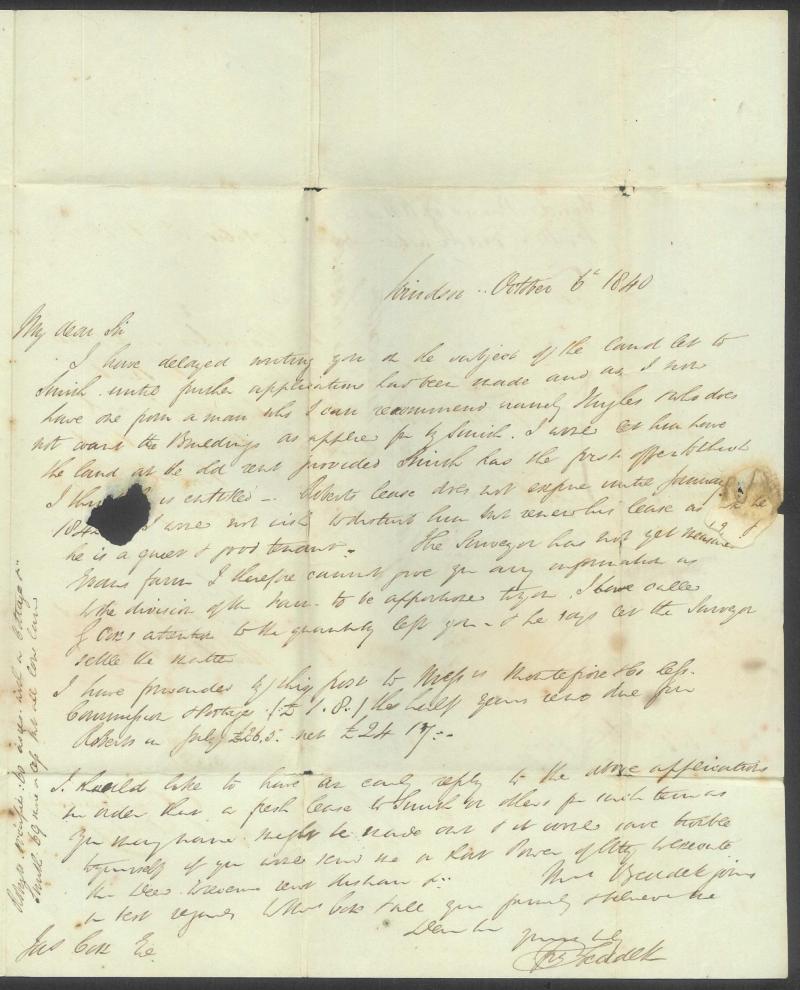 Windsor .. October 6th 1840
My dear Sir
I have delayed writing you on the subject of the land let to
Smith until further applications has been made and as I now
have one from a man who I can recommend namely Hughes who does
not want the Buildings as applied for by Smith. I would let him have
the land at the old rent provided Smith has the first offer which
I is entitled Roberts lease does not expire until January
184 I would not wish to disturb him but renew his lease as
he is a quiet & good tenant. The Surveyor has not yet measured
Evans farm I therefore cannot give you any information as
to the division of the to be apportioned to you. I have called
J Cox's attention to the quantity left you & he says let the Surveyor
settle the matter
I have forwarded by this post to Messrs Montefiore & Co less
Commission & Postage (£1.8.) the half years rent due from
Roberts in July £26.5. net £24 17
I should like to have an early reply to the above applications
in order that a fresh lease to Smith or others for such term as
you may name might be made out & it would save trouble
to yourself if you would send me a short Power of Atty to execute
the Deed & receive rent Mrs Beddek joins
in best regards to Mrs Cox & all your family & believe me
Dear Sir yours truly
Beddek
Jas Cox Esq